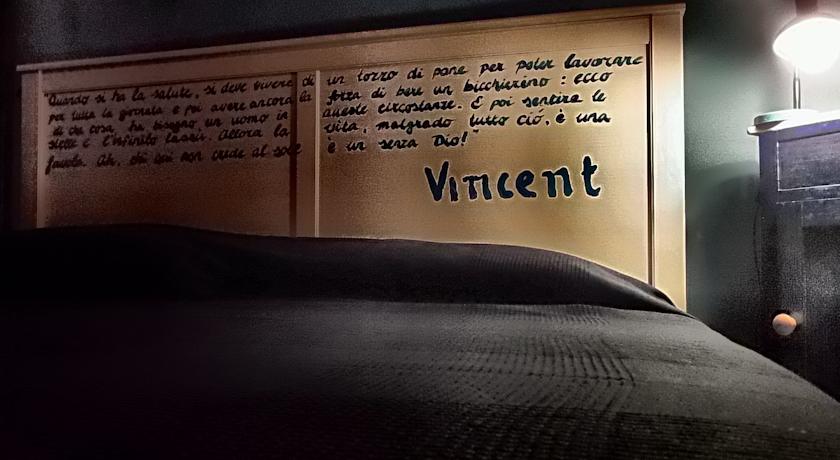 "Quando si ha la salute, si deve vivere di un tozzo di pane per poter lavorare
per tutta la giornata e poi avere ancora la forza di bere un bicchierino : ecco
di che cosa ha bisogno un uomo in queste circostanze. E poi sentire le
stelle e l'infinito lassù. Allora la vita, malgrado tutto ciò, è una
favola. Ah, chi qui non crede al sole è un senza Dio!"
Vincent